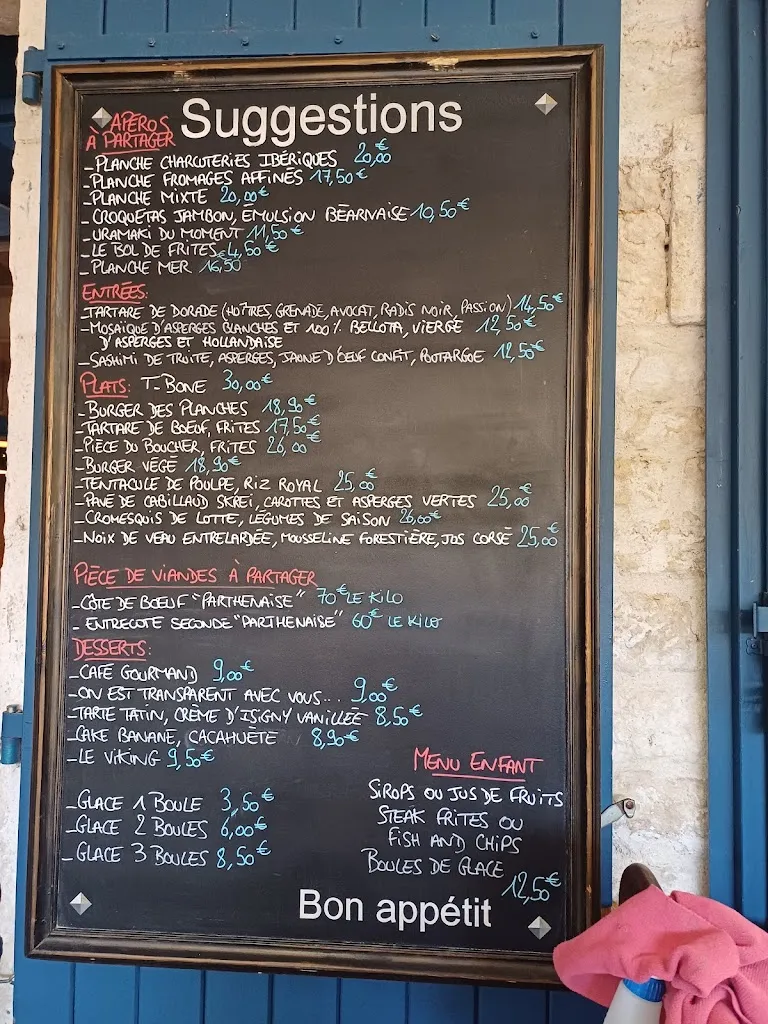 Suggestions
APÉROS
À PARTAGER
_PLANCHE CHARCUTERIES IBÉRIQUES 20,00
_PLANCHE FROMAGES AFFINÉS 17,50€
_PLANCHE MIXTE 20,00€
_CROQUETAS JAMBON, ÉMULSION BÉARNAISE 10,50€
_URAMAKI DU MOMENT 11,50€
_LE BOL DE FRITES 4,50€
_PLANCHE MER 16,50€
ENTRÉES:
_TARTARE DE DORADE (HUÎTRES, GRENADE, AVOCAT, RADIS NOIR, PASSION) 14,50€
_MOSAÏQUE D'ASPERGES BLANCHES ET 100% BELLOTA, VIERGE 12,50€
D'ASPERGES ET HOLLANDAISE
_SASHIMI DE TRUITE, ASPERGES, JAUNE D'ŒUF CONFIT, POUTARGUE 12,50€
PLATS: T-BONE 30,00€
_BURGER DES PLANCHES 18,90€
_TARTARE DE BOEUF, FRITES 17,50€
_PIÈCE DU BOUCHER, FRITES 26,00€
_BURGER VÉGÉ 18,90€
_TENTACULE DE POULPE, RIZ ROYAL 25,00€
_PAVÉ DE CABILLAUD SKREI, CAROTTES ET ASPERGES VERTES 25,00€
_CROMESQUIS DE LOTTE, LÉGUMES DE SAISON 26,00€
_NOIX DE VEAU ENTRELARDÉE, MOUSSELINE FORESTIÈRE, JUS CORSÉ 25,00€
PIÈCE DE VIANDES À PARTAGER
_CÔTE DE BOEUF "PARTHENAISE" 70€ LE KILO
_ENTRECOTE SECONDE "PARTHENAISE" 60€ LE KILO
DESSERTS:
_CAFÉ GOURMAND 9,00€
_ON EST TRANSPARENT AVEC VOUS... 9,00€
_TARTE TATIN, CRÈME D'ISIGNY VANILLÉE 8,50€
_CAKE BANANE, CACAHUÈTE 8,90€
_LE VIKING 9,50€
_GLACE 1 BOULE 3,50€
_GLACE 2 BOULES 6,00€
_GLACE 3 BOULES 8,50€
MENU ENFANT
SIROPS OU JUS DE FRUITS
STEAK FRITES OU
FISH AND CHIPS
BOULES DE GLACE
12,50€
Bon appétit